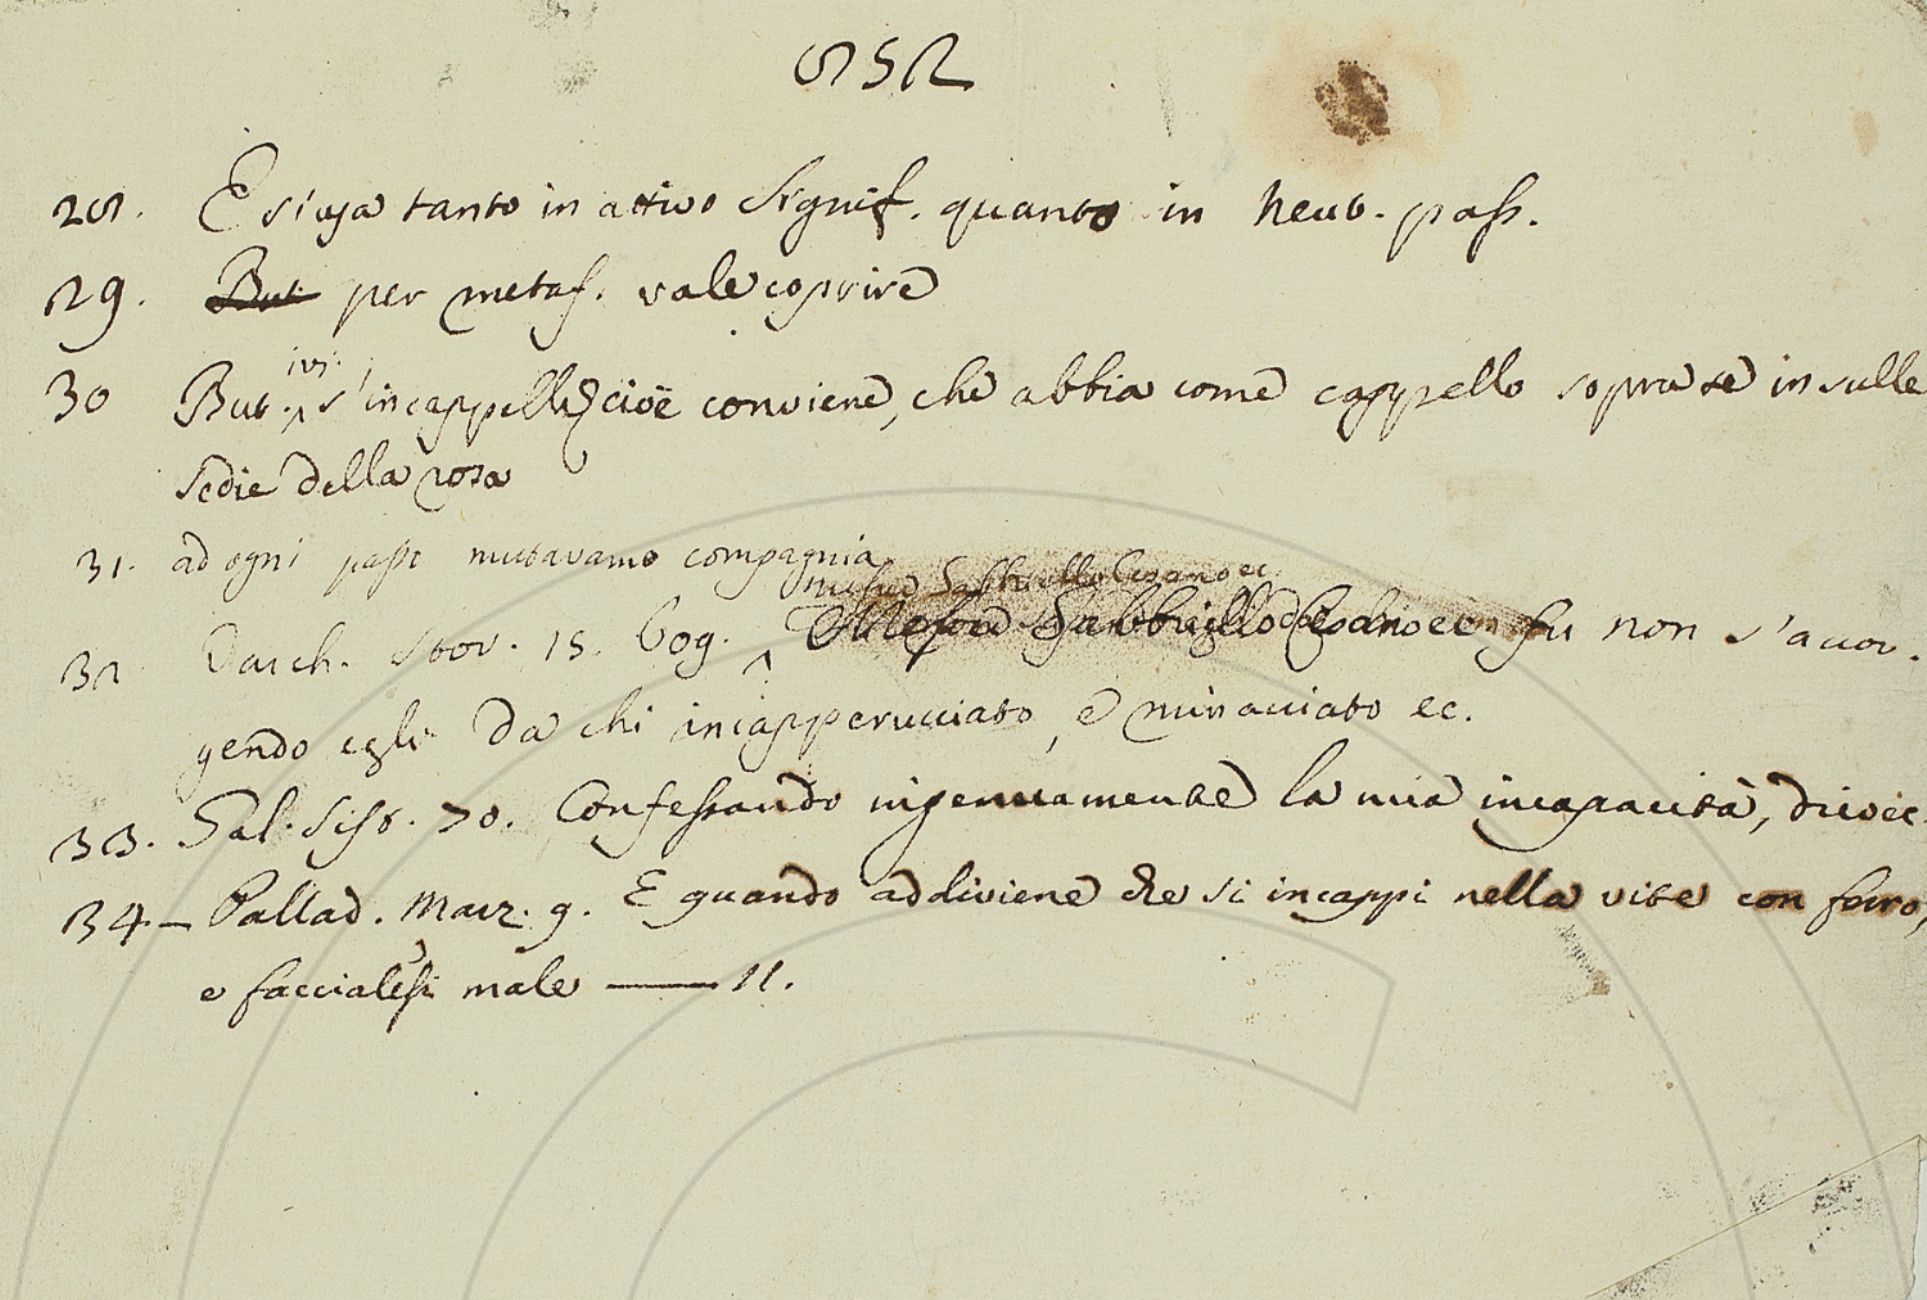 852
28. E s'usa tanto in attivo signif. quanto in neut. pass.
29. But per metaf. vale coprire
30 But. ivi. s'incappelle, cioè conviene, che abbia come cappello sopra se in sulle
sedie della rosa
31. ad ogni passo mutavamo compagnia
Cesano ec
32 Varch. Stor. 15. Cog. Cesano ec fu non s'accor.
gendo egli da chi incapperucciato, e minacciato ec.
33. Gal. Sist. 70. Confessando ingenuamente la mia incapacità, dico ec.
34 – Pallad. Marz. 9. E quando addiviene che si incappi nella vite con ferro,
e faccialesi male —— 11.